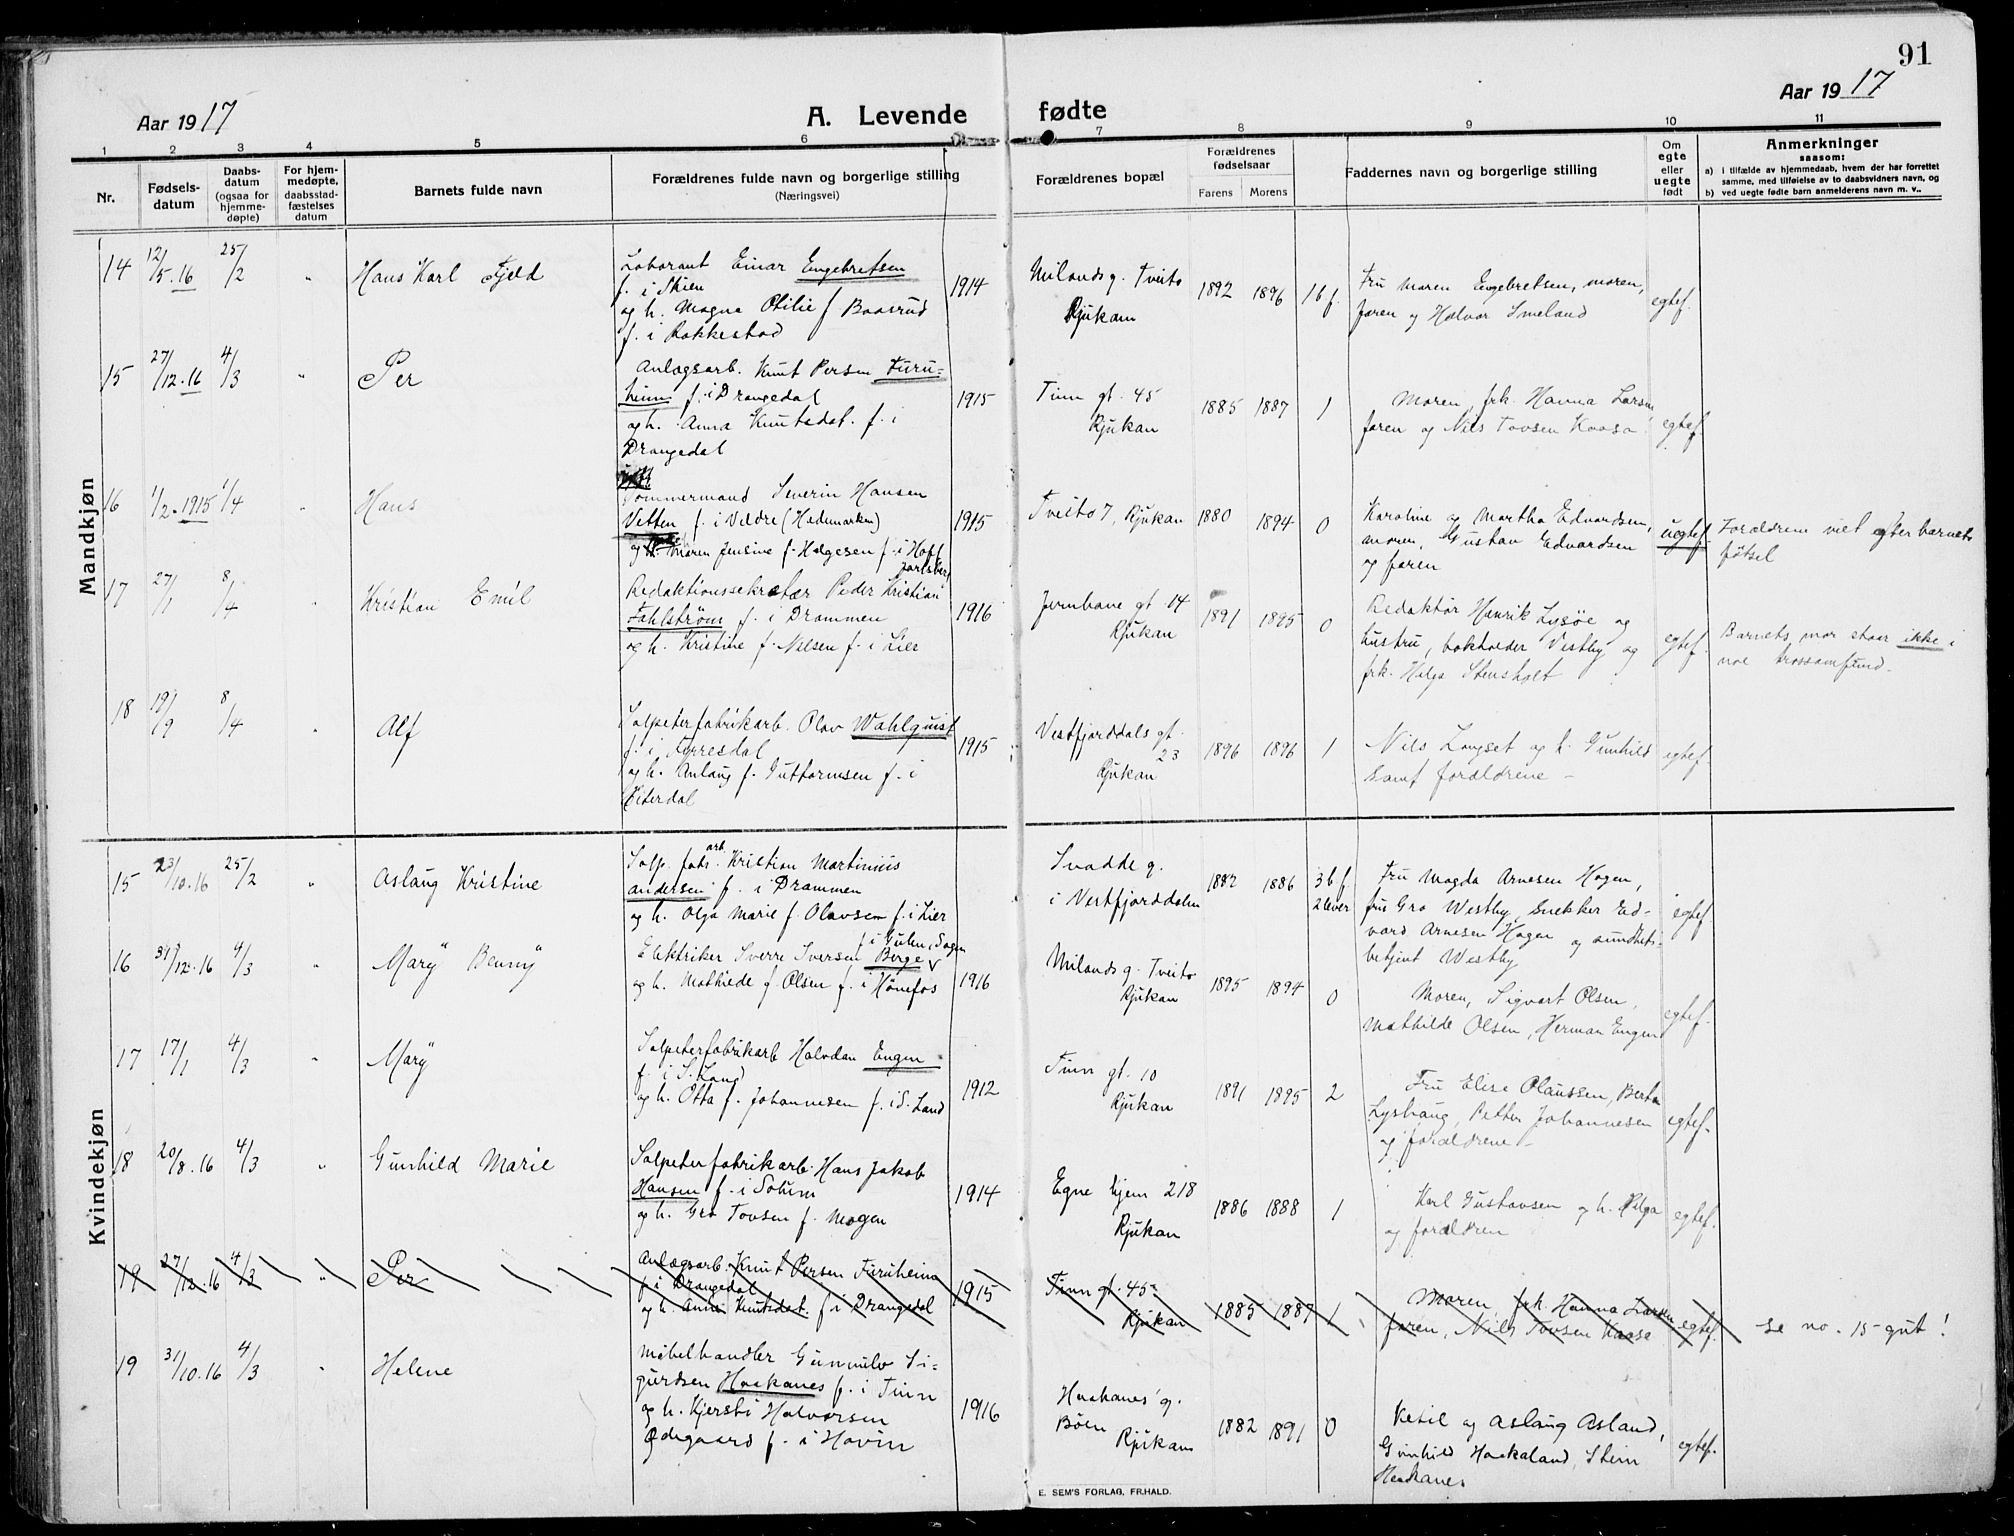 91
Aar 1917
A. Levende fødte
Aar 1917
1 2 3 4 5 6 7 8 9 10 11
Nr.
Fødsels-
datum
Daabs-
datum
(ogsaa for
hjemme-
døpte)
For hjem-
medøpte,
daabsstad-
fæstelses
datum
Barnets fulde navn
Forældrenes fulde navn og borgerlige stilling
(Næringsvei)
Forældrenes bopæl
Forældrenes
fødselsaar
Farens Morens
Faddernes navn og borgerlige stilling
Om
egte
eller
uegte
født
Anmerkninger
saasom:
a) i tilfælde av hjemmedaab, hvem der har forrettet
samme, med tilføielse av to daabsvidners navn, og
b) ved uegte fødte barn anmelderens navn m. v..
Mandkjøn
14 12/5.16 25/2 " Hans Karl Fjeld
Laborant Einar Engebretsen
f. i Skien
og h. Magna Otilie f Baasrud
f. i Rakkestad
1914
Milands g. Tveito
Rjukan
1892 1896 1b f.
Fru Maren Engebretsen, moren,
faren og Halvor Smeland
egtef.
15 27/12.16 4/3 " Per
Anlægsarb. Knut Persen Furu-
heim f. i Drangedal
og h. Anna Knutsdat. f. i
Drangedal
1915
Tinn gt. 45
Rjukan
1885 1887 1
Moren, frk. Hanna Larsen,
faren og Nils Tovsen Kaasa
egtef.
16 1/2.1915 1/4 " Hans
Tømmermand Severin Hansen
Vetten f. i Veldre (Hedemarken)
og Maren Jensine f. Helgesen f. i Hoff
Jarlsberg
1915
Tveito 7, Rjukan
1880 1894 0
Karoline og Martha Edvardsen,
moren, Gustav Edvardsen
og faren
uegtef.
Forældrene viet efter barnets
fødsel
17 27/1 8/4 " Kristian Emil
Redaktionssekretær Peder Kristian
Fahlstrøm f. i Drammen
og h. Kristine f. Nilsen f. i Lier
1916
Jernbane gt 14
Rjukan
1891 1895 0
Redaktør Henrik Lysøe og
hustru, bokholder Vestby og
frk. Helga Stensholt
egtef.
Barnets mor staar ikke i
noe trossamfund.
18 19/9 8/4 " Alf
Salpeterfabrikarb. Olav Wahlquist
f. i Nissedal
og h. Anlaug f. Guttormsen f. i
Hiterdal
1915
Vestfjorddals gt.
23
Rjukan
1896 1896 1
Nils Langset og h. Gunhild
samt forældrene –
egtef.
Kvindekjøn
15 23/10.16 25/2 " Aslaug Kristine
Salp. fabr. arb. Kristian Martinius
Andersen f. i Drammen
og h. Olga Marie f. Olavsen f. i Lier
Svadde g.
i Vestfjorddalen
1882 1886 3 b f.
2 lever
Fru Magda Arnesen Hagen,
fru Gro Westby, Snekker Ed-
vard Arnesen Hagen og sundhets-
betjent Westby
egtef.
16 31/12.16 4/3 " Mary Benny
f i Gulen, Sogn
Elektriker Sverre Iversen Berge
og h. Mathilde f. Olsen f. i Hønefos
1916
Milands g. Tveito
Rjukan
1895 1894 0
Moren, Sigvart Olsen,
Mathilde Olsen, Herman Engen
egtef.
17 17/1 4/3 " Mary
Salpeterfabrikarb Halvdan Engen
f. i S. Land
og h. Otta f. Johannesen f. i S. Land
1912
Tinn gt. 10
Rjukan
1891 1895 2
Fru Elise Olaussen, Berta
Lyshaug, Petter Johannesen
og forældrene –
egtef.
18 20/8.16 4/3 " Gunhild Marie
Salpeterfabrikarb. Hans Jakob
Hansen f. i Solum
og h. Gro Tovsen f. Mogen
1914
Egne hjem 218
Rjukan
1886 1888 1
Karl Gustavsen og h. Helga
og forældren
egtef.
19 27/12.16 4/3 " Per
Anlægsarb. Knut Persen Furuheim
f i Drangedal
og h. Anna Knutsdat. f i Drangedal
1915
Tinn gt. 45
Rjukan
1885 1887 1
Moren, frk. Hanna Larsen
faren, Nils Tovsen Kaasa
egtef.
se no. 15 gut!
19 31/10.16 4/3 " Helene
Møbelhandler Gunnulv Si-
gurdsen Haakanes f. i Tinn
og h. Kjersti Halvorsen
Ødegaard f. i Hovin
1916
Haakanes' g.
Bøen
Rjukan
1882 1891 0
Ketil og Aslaug Asland,
Gunhild Haakaland, Stein
Haakanes
egtef.
E. SEM'S FORLAG, FR.HALD.